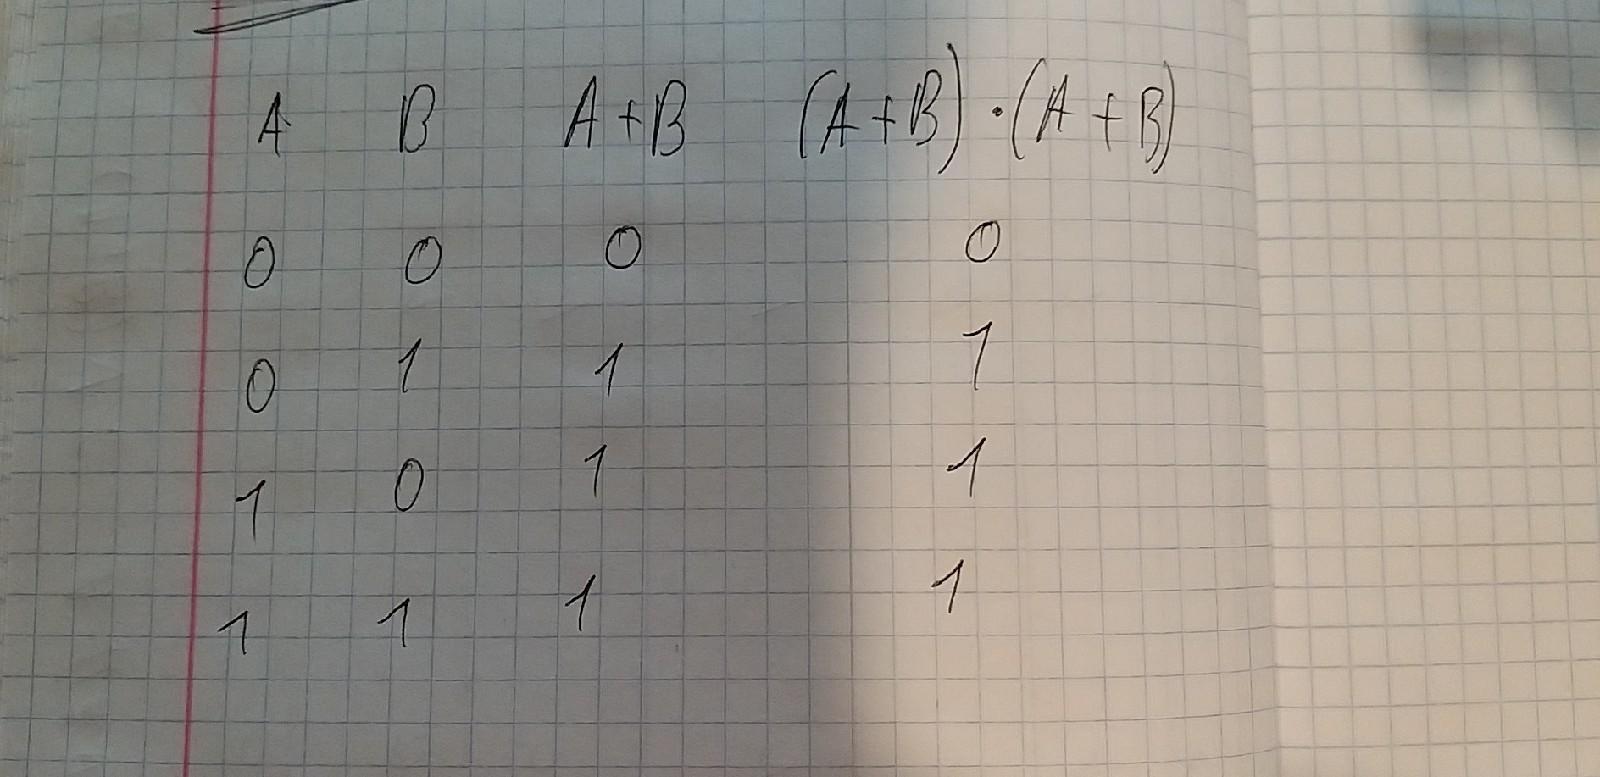 A B A+B (A+B)·(A+B)
0 0 0 0
0 1 1 1
1 0 1 1
1 1 1 1